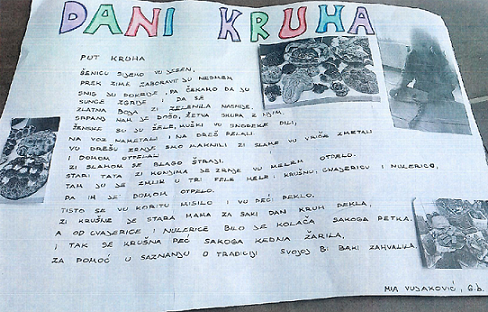 DANI KRUHA
PUT KRUHA
ŠENICU SIJEMO VU JESEN,
PREK ZIME ZABORAVIT JU NESMEM
SNIG JU POKRIJE, PA ČEKAMO DA JU
SUNCE ZGRIJE I DA SE
ZLATNA BOJA ZI ZELENILA NASMIJE,
SRPANJ NAM JE DOŠO, ŽETVA SKUPA Z NJIM.
ŽENSKE SU JU ŽELE, MUŠKI VU SNOPEKE DILI,
NA VOZ NAMETALI I NA DREŠ PELALI.
VU DREŠU ZRNJE SMO MAKNILI ZI SLAME VU VRIČE ZMETALI
I DOMOM OTPELALI
ZI SLAMOM SE BLAGO ŠTRAJI.
STARI TATA ZI KONJIMA JE ZRNJE VU MELEN OTPELO.
TAM JU JE ZMLIK U TRI FELE MELE: KRUŠNU, CVAJERICU I NULERICO,
PA IH JE DOMOM OTPELO.
TISTO SE VU KORITU MISILO I VU PEĆI PEKLO.
ZI KRUŠNE JE STARA MAMA ZA SAKI DAN KRUH PEKLA,
A OD CVAJERICE I NULERICE BILO JE KOLAČA SAKOGA PETKA.
I TAK SE KRUŠNA PEĆ SAKOGA KEDNA ŽARILA,
ZA POMOĆ U SAZNANJU O TRADICIJI SVOJOJ BI BAKI ZAHVALILA.
MIA VUJAKOVIĆ, 6.b.